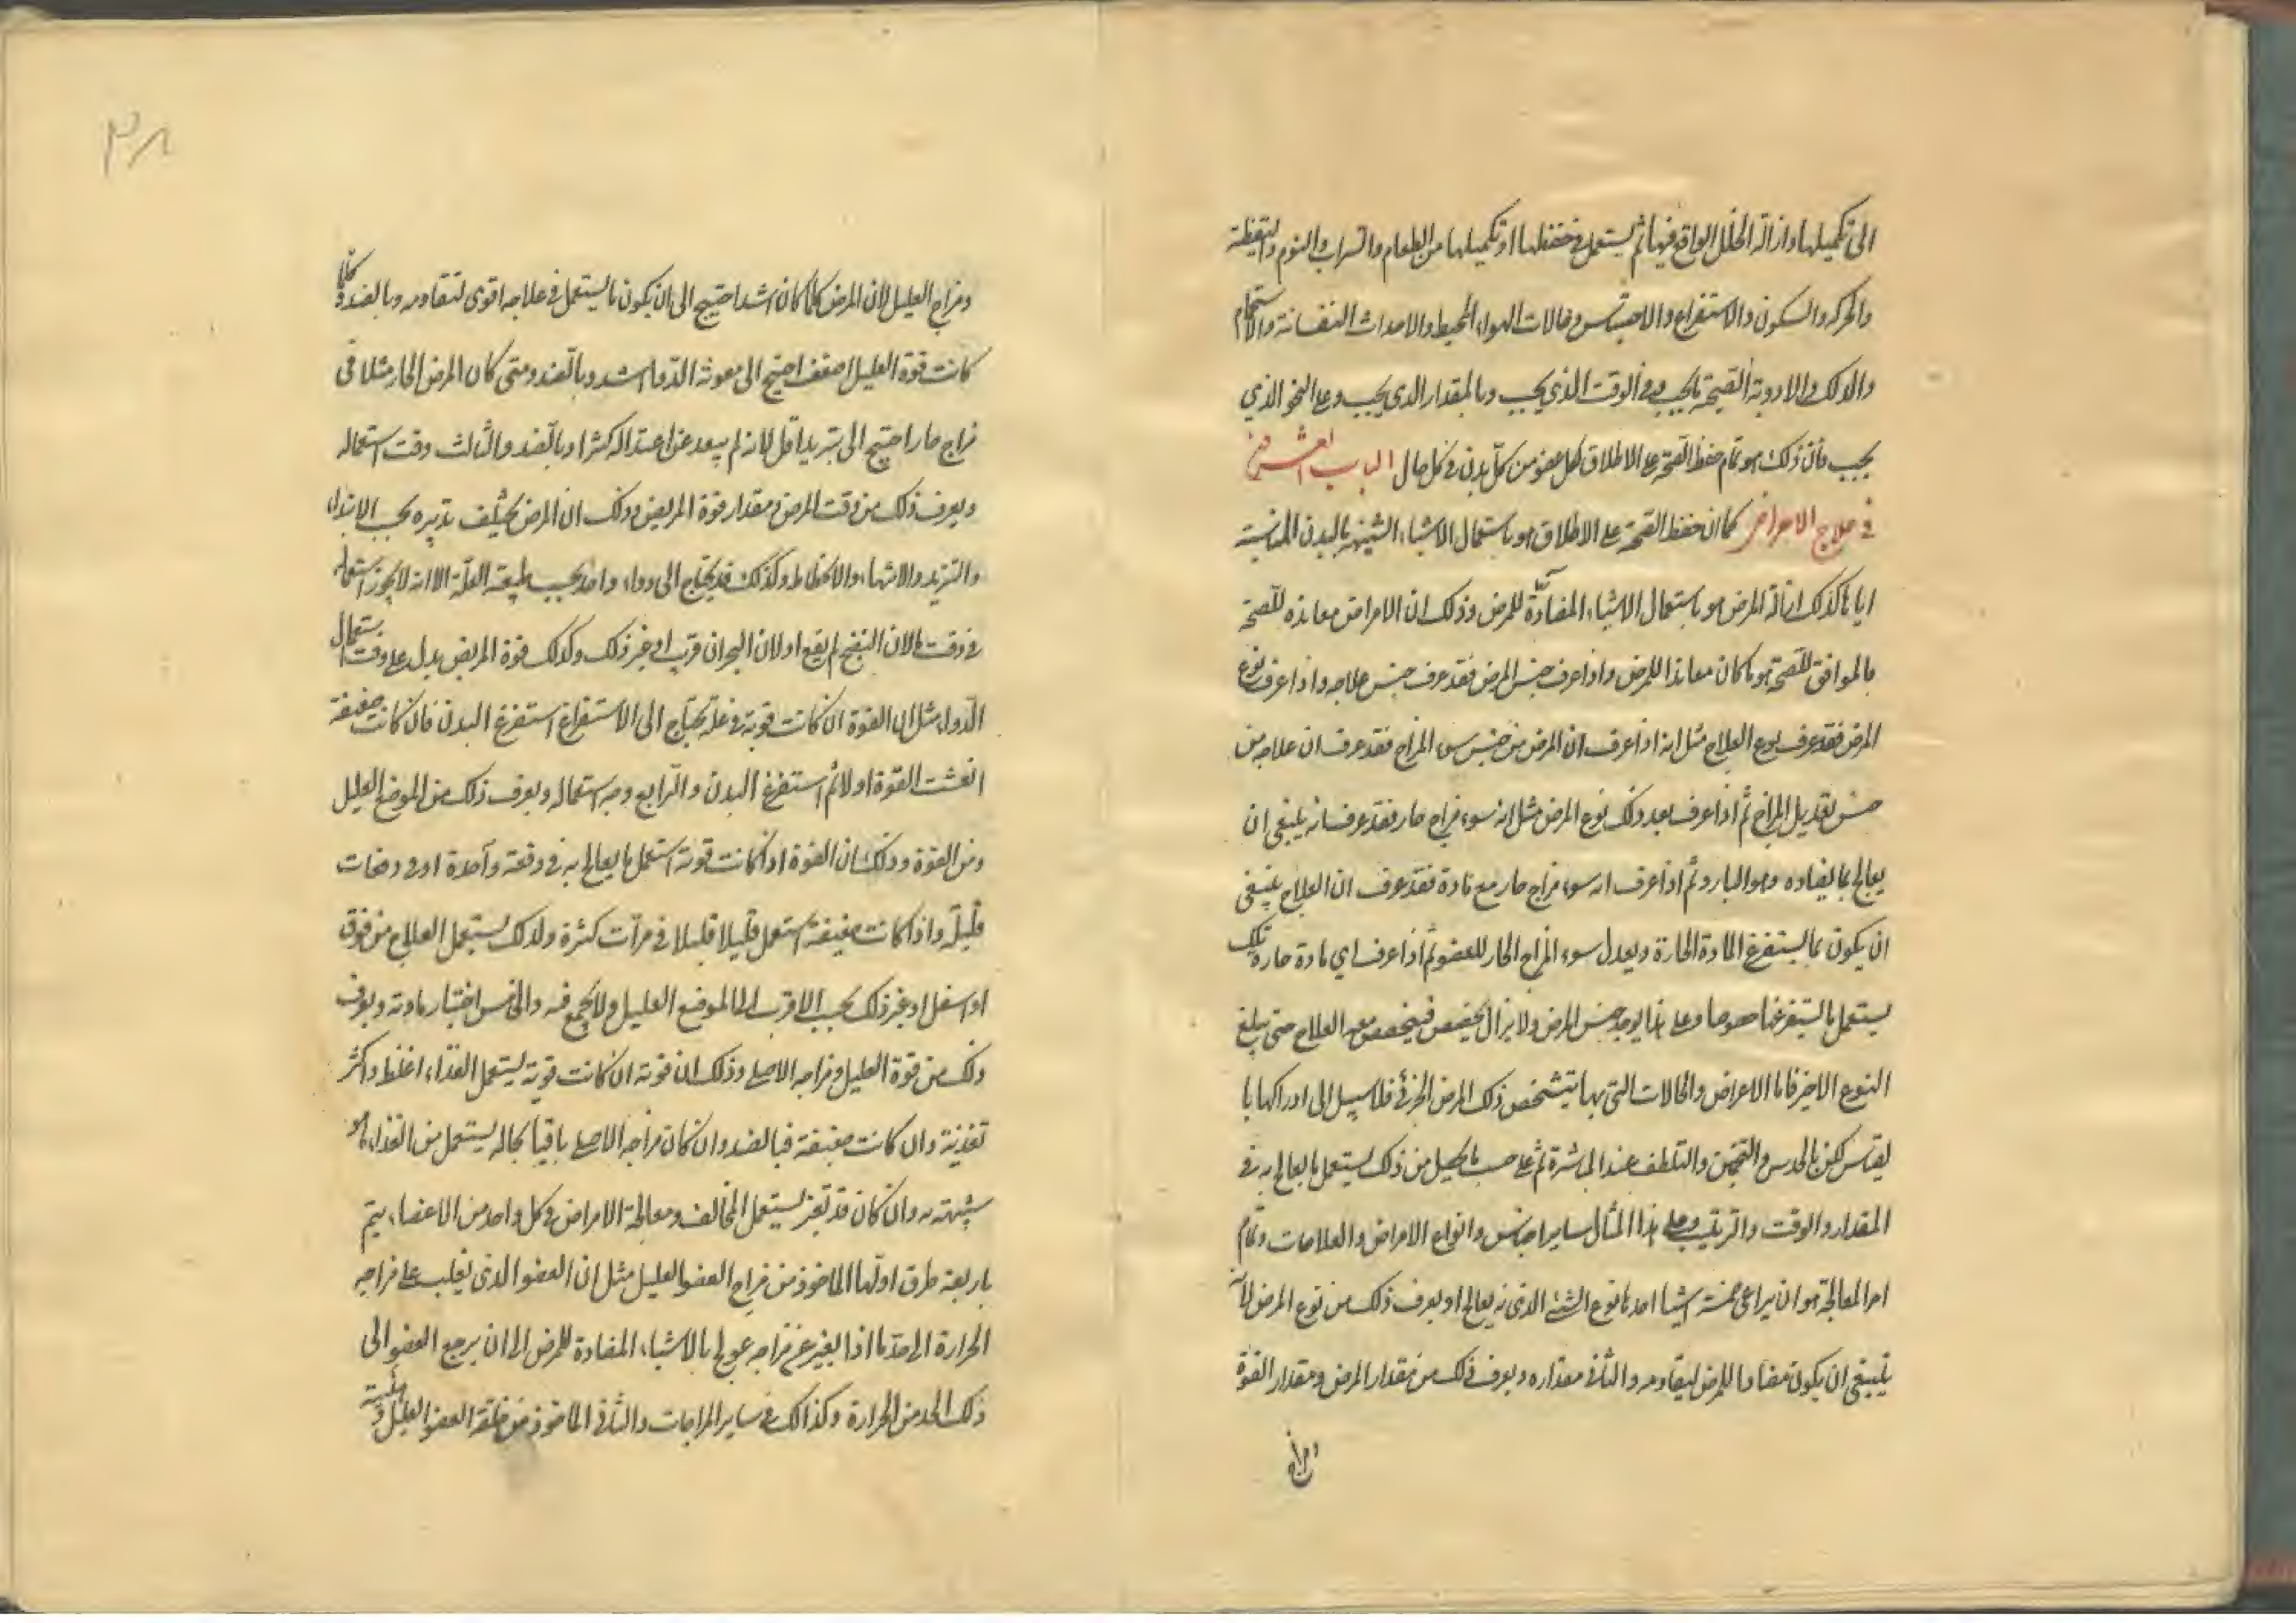 الى تكميلها وازالة الخلل الواقع فيها ثم يستعمل في حفظها او تكميلها من الطعام والشراب والنوم واليقظة
والحركة والسكون والاستفراغ والاحتباس وحالات الهواء المحيط والاحداث النفسانية والاستحمام
والدلك والادوية الصحية ما يجب وفي الوقت الذي يجب وبالمقدار الذي يجب وعلى النحو الذي
يجب فان ذلك هو تمام حفظ الصحة على الاطلاق لكل عضو من كل بدن في كل حال الباب العشرون
في علاج الامراض كما ان حفظ الصحة على الاطلاق هو باستعمال الاشياء الشبيهة بالبدن المناسبة
اياها كذلك ازالة المرض هو باستعمال الاشياء المضادة للمرض وذلك ان الامراض معاندة للصحة
فالموافق للصحة هو ما كان معاندا للمرض واذا عرف جنس المرض فقد عرف جنس علاجه واذا عرف نوع
المرض فقد عرف نوع العلاج مثل انه اذا عرف ان المرض من جنس سوء المزاج فقد عرف ان علاجه من
جنس تعديل المزاج ثم اذا عرف بعد ذلك نوع المرض مثل انه سوء مزاج حار فقد عرف انه ينبغي ان
يعالج بما يضاده وهو البارد ثم اذا عرف انه سوء مزاج حار مع مادة فقد عرف ان العلاج ينبغي
ان يكون بما يستفرغ المادة الحارة ويعدل سوء المزاج الحار للعضو ثم اذا عرف اي مادة حارة تلك
يستعمل ما يستفرغها خصوصا وعلى هذا يوجد جنس المرض ولا يزال يخصص فيخصص معه العلاج حتى يبلغ
النوع الاخير فاما الاعراض والحالات التي بها يتشخص ذلك المرض الجزئي فلا سبيل الى ادراكها با
لقياس لكن بالحدس والتخمين والتلطف عند المباشرة ثم على حسب ما يحصل من ذلك يستعمل ما يعالج به في
المقدار والوقت والترتيب وعلى هذا المثال ساير اجناس وانواع الامراض والعلامات وتمام
امر المعالجة هو ان يراعى خمسة اشيا احدها نوع الشئ الذي به يعالج او يعرف ذلك من نوع المرض لانه
ينبغي ان يكون مضادا للمرض ليقاومه والثاني مقداره ويعرف ذلك من مقدار المرض ومقدار القوة
ومزاج
٣٨
ومزاج العليل لان المرض كلما كان اشد احتيج الى ان يكون ما يستعمل في علاجه اقوى لتقاومه وبالضد وكلما
كانت قوة العليل اضعف احتيج الى معونة الدواء اشد وبالضد ومتى كان المرض الحار مثلا في
مزاج حار احتيج الى تبريد اقل لانه لم يبعد عن اعتداله كثيرا وبالضد والثالث وقت استعماله
ويعرف ذلك من وقت المرض ومقدار قوة المريض وذلك ان المرض يختلف تدبيره بحسب الابتداء
والتزيد والانتهاء والانحطاط وكذلك قد يحتاج الى دواء واحد بحسب طبيعة العلة الا انه لا يجوز استعماله
في وقت ما لان النضج لم يقع او لان البحران قرب او غير ذلك وكذلك قوة المريض يدل على وقت استعمال
الدواء مثل ان القوة ان كانت قوية في علة يحتاج الى الاستفراغ استفرغ البدن فان كانت ضعيفة
انعشت القوة اولا ثم استفرغ البدن والرابع وجه استعماله ويعرف ذلك من الموضع العليل
ومن القوة وذلك ان القوة اذا كانت قوية استعمل ما يعالج به في دفعة واحدة او في دفعات
قليلة واذا كانت ضعيفة استعمل قليلا قليلا في مرات كثيرة ولذلك يستعمل العلاج من فوق
او اسفل او غير ذلك بحسب الاقرب الى الموضع العليل ولا يجمع فيه والخامس اختيار مادته ويعرف
ذلك من قوة العليل ومزاجه الاصلي وذلك ان قوته ان كانت قوية يستعمل الغذاء اغلظ واكثر
تغذية وان كانت ضعيفة فبالضد وان كان مزاجه الاصلي باقيا بحاله يستعمل من الغذاء ما هو
شبيه به وان كان قد تغير يستعمل المخالف ومعالجة الامراض في كل واحد من الاعضاء يتم
باربعة طرق اولها الماخوذ من مزاج العضو العليل مثل ان العضو الذي يغلب على مزاجه
الحرارة الى حد ما اذا تغير عن مزاجه عولج بالاشياء المضادة للمرض الى ان يرجع العضو الى
ذلك الحد من الحرارة وكذلك في ساير المزاجات والثاني الماخوذ من خلقة العضو العليل